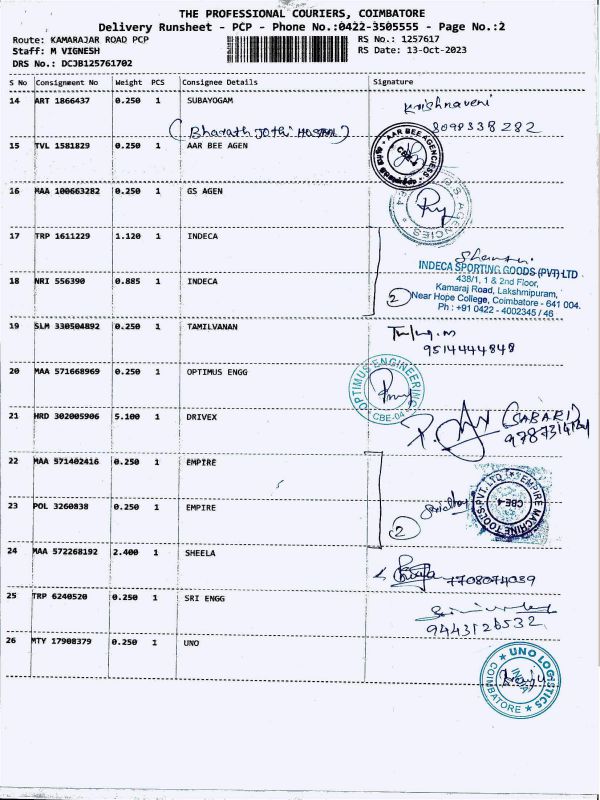 THE PROFESSIONAL COURIERS, COIMBATORE
Delivery Runsheet - PCP - Phone No.:0422-3505555 - Page No.:2
Route: KAMARAJAR ROAD PCP
RS No.: 1257617
Staff: M VIGNESH
RS Date: 13-Oct-2023
DRS No.: DCJB125761702
S No Consignment No Weight PCS Consignee Details Signature
14 ART 1866437 0.250 1 SUBAYOGAM Krishnaveni
(Bharath Jothi Hostal) 8098338282
15 TVL 1581829 0.250 1 AAR BEE AGEN
AAR BEE AGENCIESS
CBE-4
16 MAA 100663282 0.250 1 GS AGEN
G.S AGENCIES
17 TRP 1611229 1.120 1 INDECA
INDECA SPORTING GOODS (PVT) LTD
438/1, 1 & 2nd Floor,
Kamaraj Road, Lakshmipuram,
Near Hope College, Coimbatore - 641 004.
Ph : +91 0422 - 4002345 / 46
18 NRI 556390 0.885 1 INDECA 2
19 SLM 330504892 0.250 1 TAMILVANAN
9514444848
20 MAA 571668969 0.250 1 OPTIMUS ENGG
OPTIMUS ENGINEERING
CBE-04
21 HRD 302005906 5.100 1 DRIVEX
(SABARI)
22 MAA 571402416 0.250 1 EMPIRE
EMPIRE MACHINE TOOLS PVT. LTD
CBE-4
23 POL 3260838 0.250 1 EMPIRE 2
24 MAA 572268192 2.400 1 SHEELA 7708074039
25 TRP 6240520 0.250 1 SRI ENGG
9443126532
26 MTY 17908379 0.250 1 UNO
UNO LOGISTICS
COIMBATORE